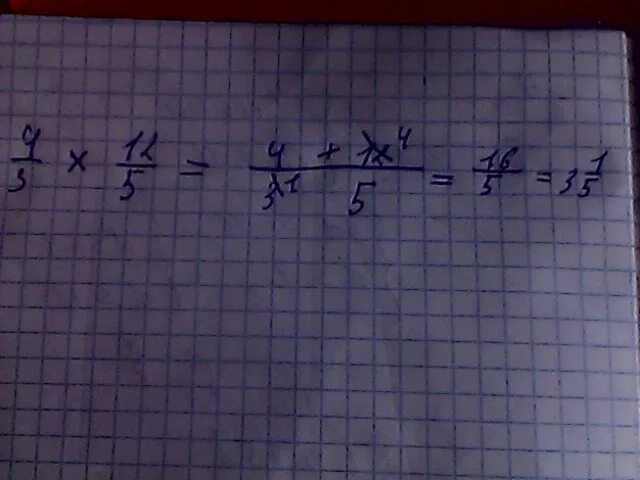 4/3 × 12/5 = 4 + 12 4 / 3 1 5 = 16/5 = 3 1/5